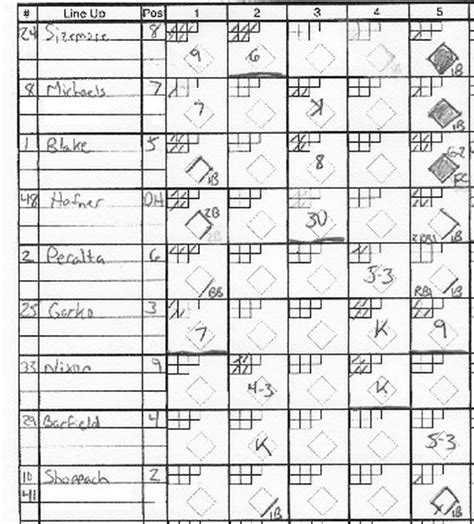 # Line Up Pos 1 2 3 4 5
24 Sizemore 8 9 6 1B
8 Michaels 7 7 K 1B
1 Blake 5 1B 8 62 FC
48 Hafner DH 2B 3U 2RBI 1B
2 Peralta 6 BB 5-3 RBI 1B
25 Garko 3 7 K 9
33 Nixon 9 4-3 K
29 Barfield 4 K 5-3
10 Shoppach 2 1B 1B
41